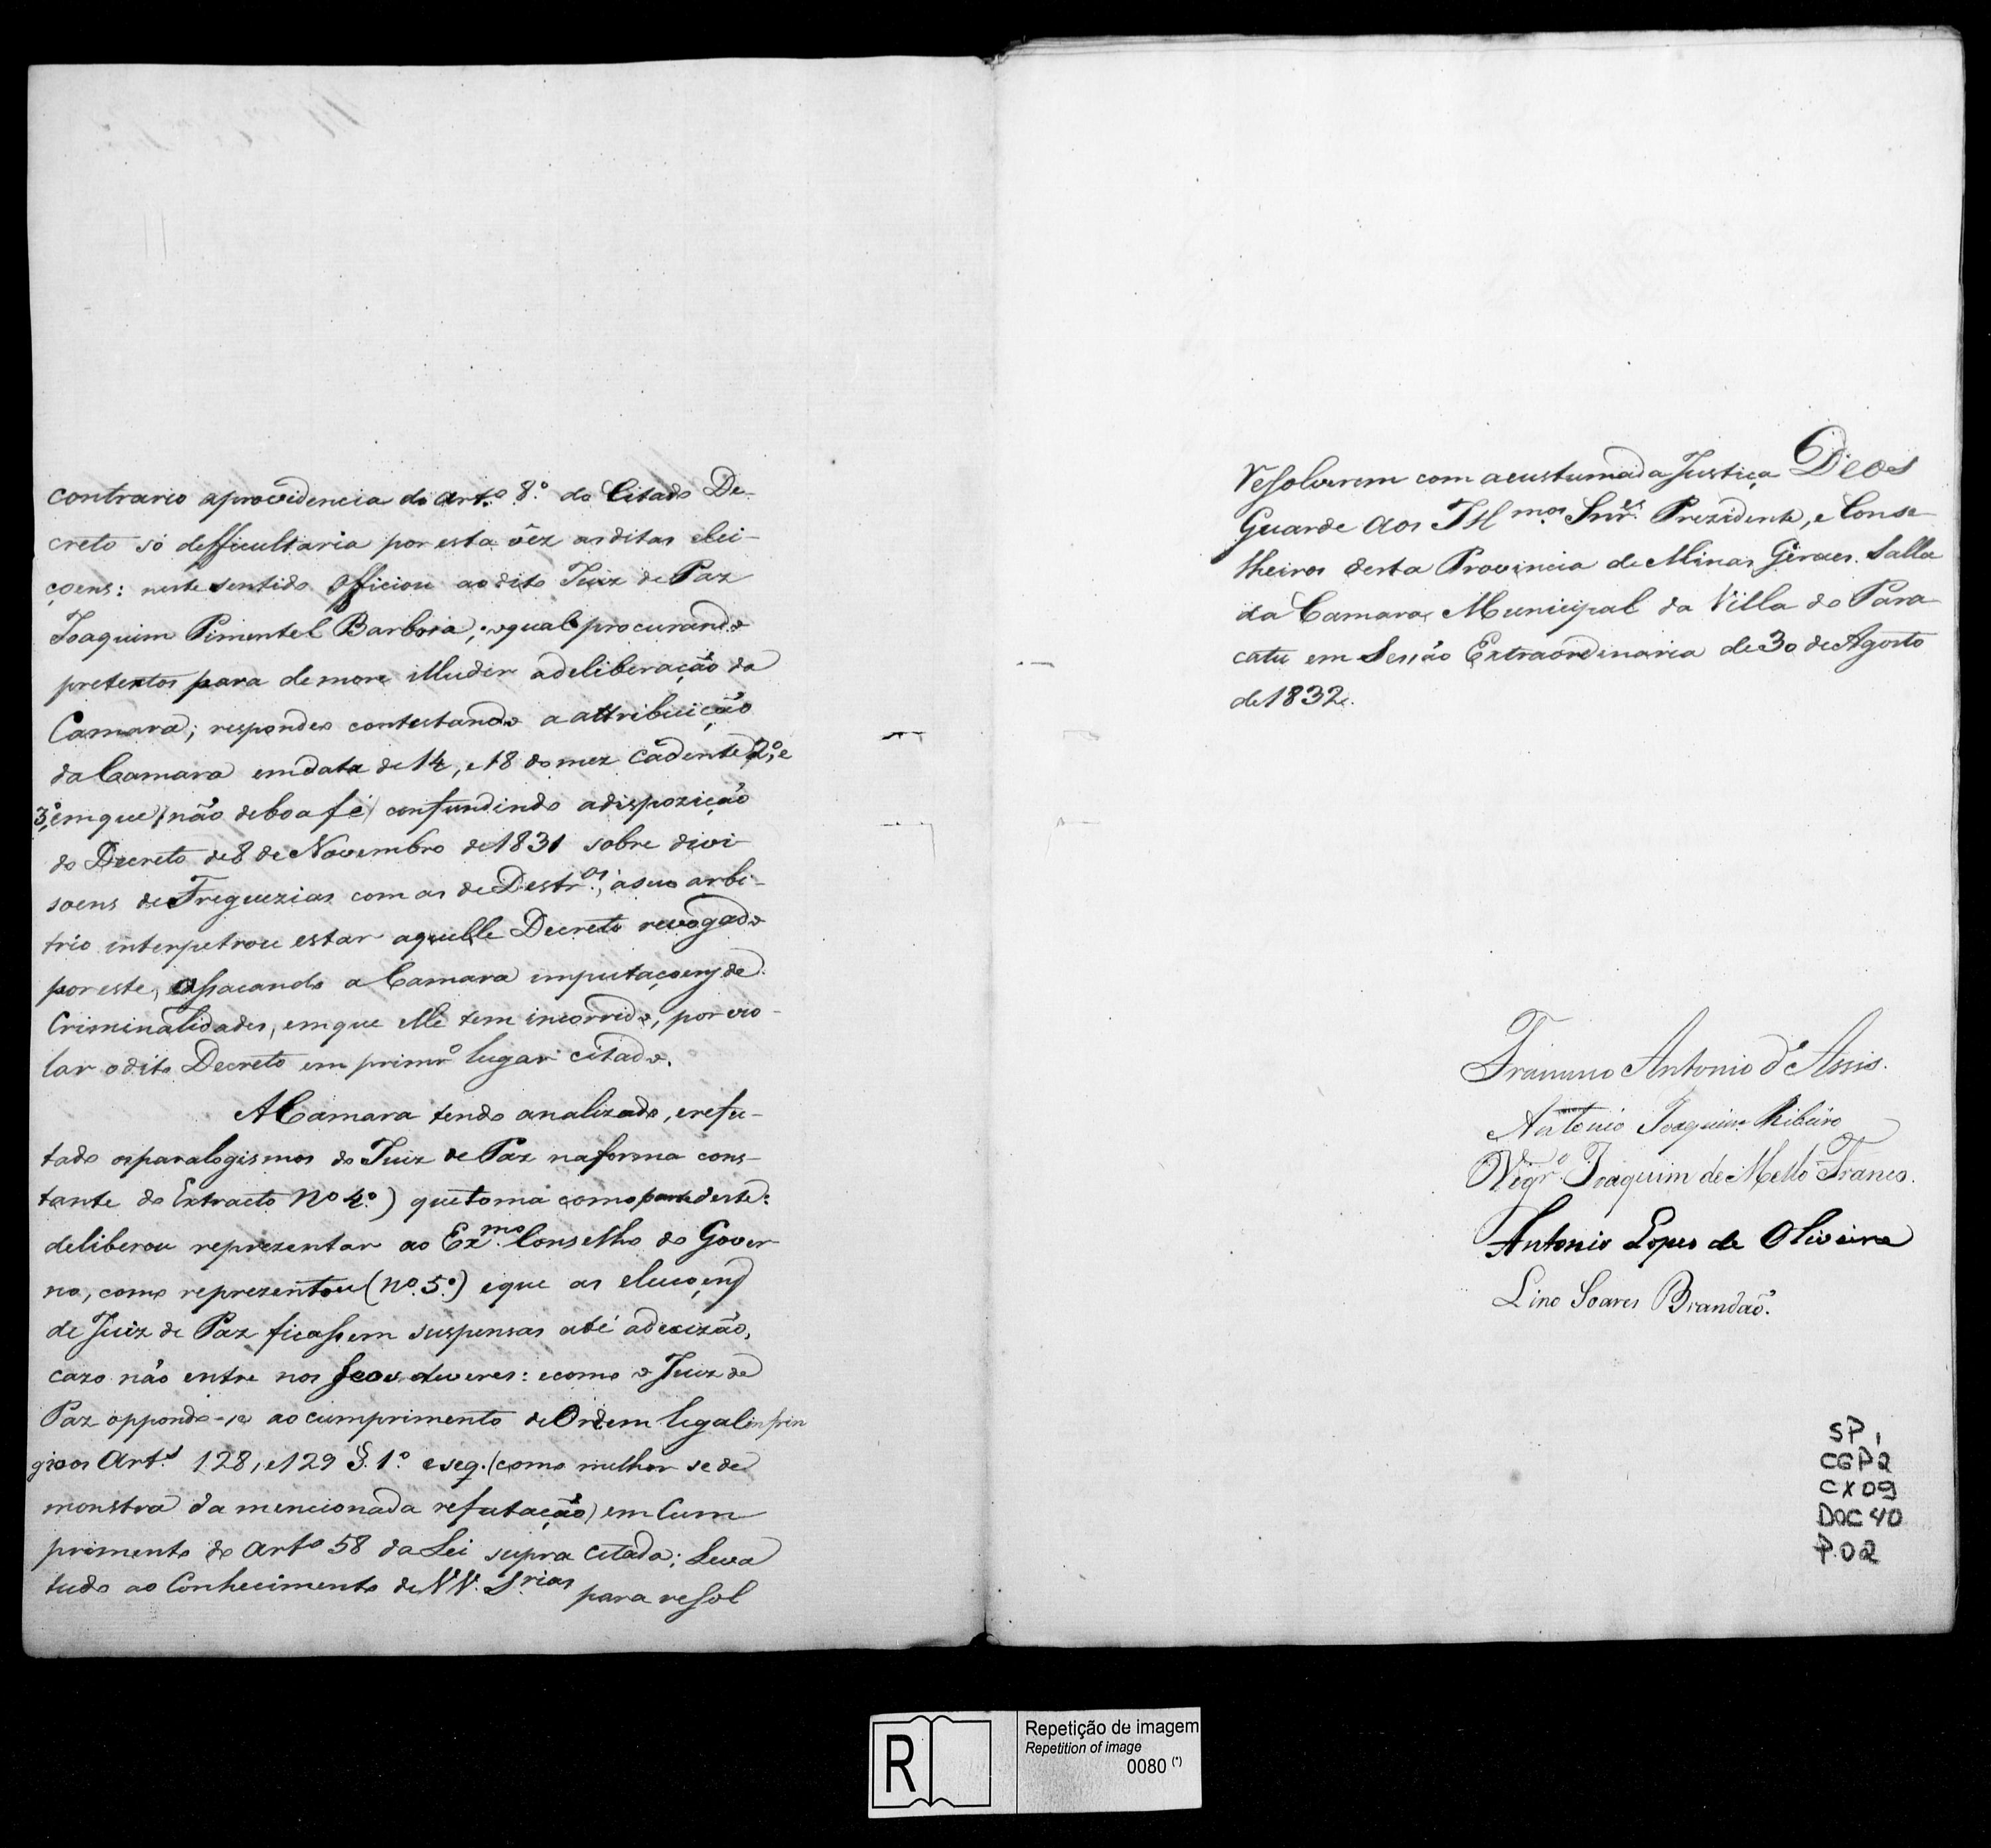 contrario aprovidencia do art.º 8.º do Citado De-
creto só defficultaria por esta vêz asditas elei-
çoens: neste sentido Officiou aodito Juiz de Paz
Joaquim Pimentel Barbosa; oqual procurando
pretextos para demora illudir adeliberação da
Camara; respondeo contestando a attribuição
da Camara emdata de 14, e 18 do mez cadente 2º, e
3º, emque (não deboa fé) confundindo adispozição
do Decreto de 8 de Novembro de 1831 sobre divi-
soens de Freguezias com as de Destr.os, aseo arbi-
trio interpetrou estar aquelle Decreto revogado
por este, assacando a Camara imputaçoens de
Criminalidades, emque elle tem incorrido, por vio-
lar odito Decreto em primrº lugar citado.
A Camara tendo analizado, erefu-
tado osparalogismos do Juiz de Paz naforma cons-
tante do Extracto Nº 4.º) quetoma como parte deste:
deliberou reprezentar ao Ex.mo Conselho do Gover
no, como reprezentou (nº 5.º) eque as eleiçoens
de Juiz de Paz ficassem suspensas até adecizão,
cazo não entre nos seos deveres: ecomo o Juiz de
Paz oppondo-se ao cumprimento de Ordem legal infrin
gio os Art.s 128, e 129 §. 1.º e seg. (como milhor se de
monstra da mencionada refutação) em Cum
primento do artº 58 da Lei supra citada; Leva
tudo ao Conhecimento de VV. S.rias para resol
Vesolverem com acustumada Justiça Deos
Guarde aos Ill mos Snr.es Prezidente, e Conse
lheiros desta Provincia de Minas Geraes. Salla
da Camara Municipal da Villa do Para
catu em Sessão Extraordinaria de 30 de Agosto
de 1832.
Antonio d'Assis.
Antonio Joaquim Ribeiro
Vigrº Joaquim de Mello Franco.
Antonio Lopes de Oliveira
Lino Soares Brandão.
SP 1
CGP2
CX09
DOC 40
P.02
R
Repetição de imagem
Repetition of image
0080 (*)